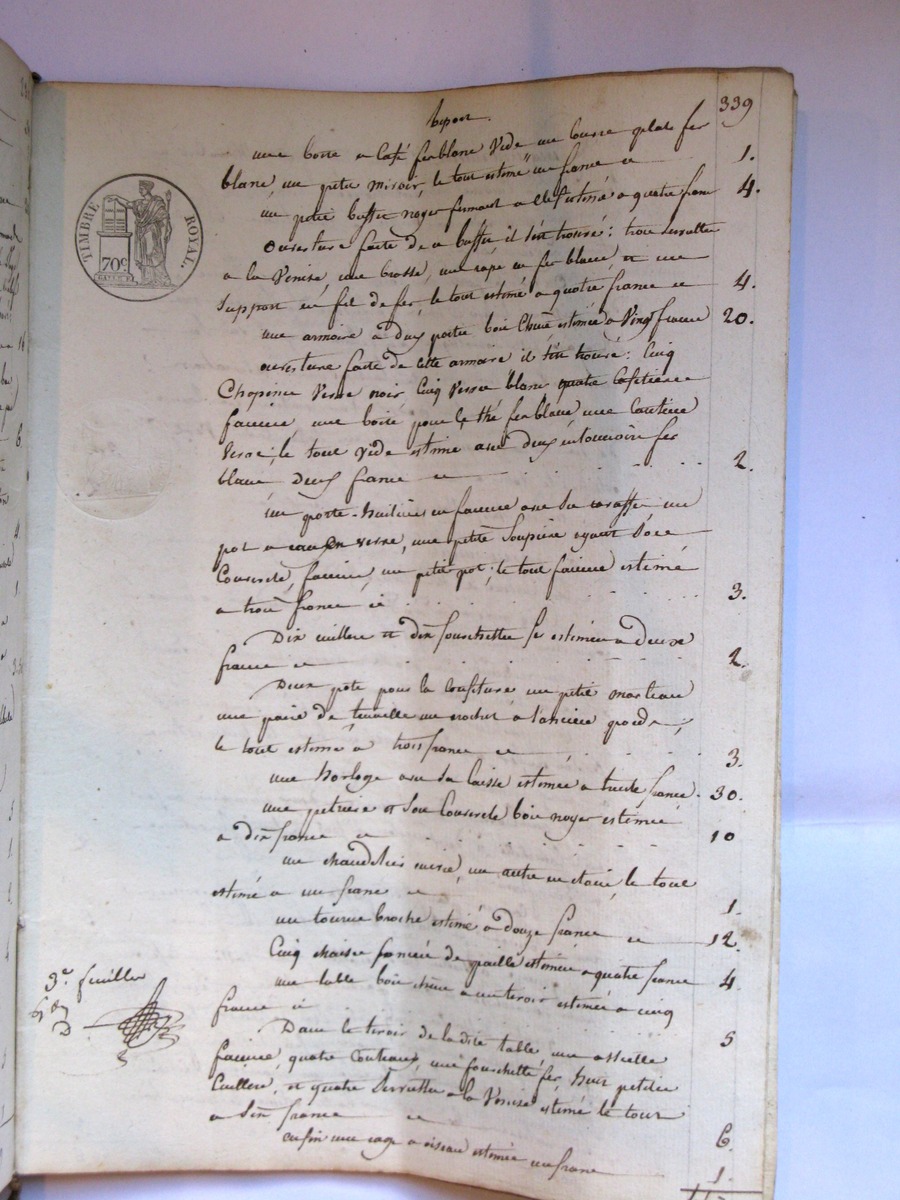 Report. 339
une boite a Café ferblanc Vide une bourse gelas fer
blanc, un petit miroir, le tout estimé un franc ci 1.
un petit buffet noyer fermant a clef estimé a quatre franc 4.
Ouverture faite de ce buffet il s'est trouvé: trois serviettes
a la Venise, une brosse, une rape en fer blanc, et un
Support en fil de fer, le tout estimé a quatre francs ci 4.
une armoire a deux portes bois Chêne estimée a Vingt francs 20.
ouverture faite de cette armoire il s'est trouvé: Cinq
Chopines Verre noir, Cinq Verres blanc quatre Cafetières
faience, une boite pour le thé ferblanc une Cantine
Verre, le tout Vide estimé avec deux entonnoirs fer
blanc deux francs ci 2.
un porte-huiliers en faience avec sa caraffe un
pot a eau en verre, une petite Soupière ayant Son
Couvercle, faience, un petit pot; le tout faience estimé
a trois francs ci 3.
Dix cuillers et dix fourchettes fer estimées a deux
francs ci 2.
Deux pots pour la Confiture un petit marteau
une paire de tenaille un crochet a l'ancien poids,
le tout estimé a trois francs ci 3.
une horloge avec sa Caisse estimée a trente francs. 30.
une petrière et Son Couvercle bois noyer estimée
a dix francs ci 10
un chandelier cuivre, un autre en étain, le tout
estimé a un franc ci 1.
un tourne broche estimé a douze francs ci 12.
Cinq chaises foncées de paille estimées a quatre francs 4
une table bois chêne a un tiroir estimée a cinq
francs ci 5
Dans le tiroir de la dite table, une assiette
faience, quatre Couteaux, une fourchette fer, huit petites
Cuillers, et quatre Serviettes a la Venise estimé le tout
a Six francs ci 6.
enfin une cage a oiseau estimée un franc 1.
TIMBRE ROYAL.
70c
3e. feuillet